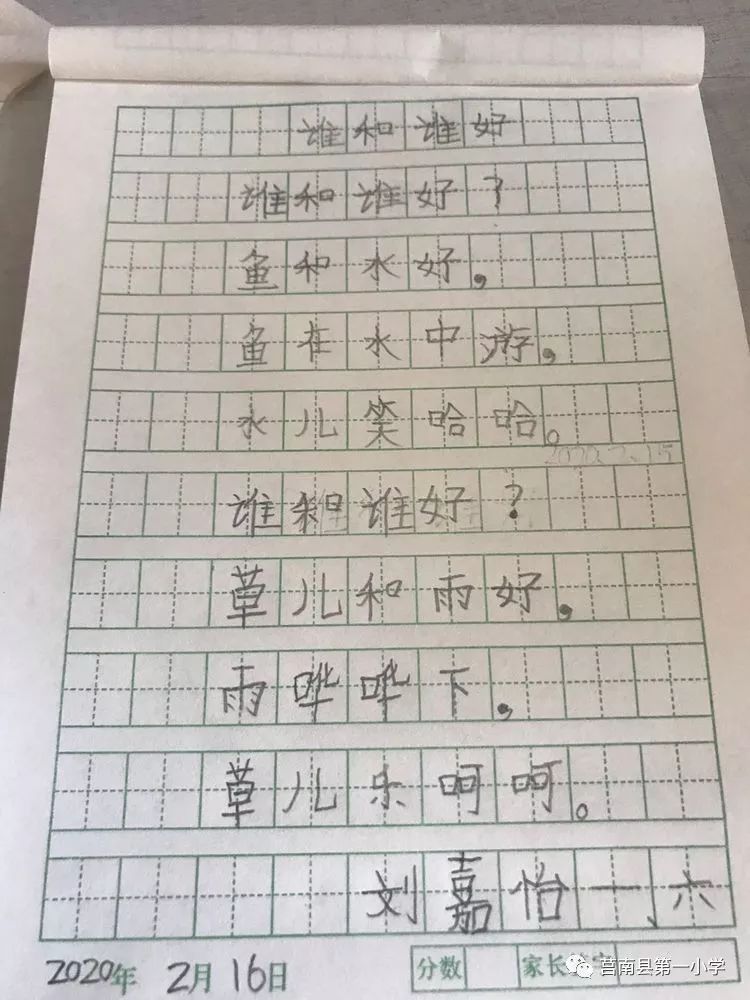 谁和谁好
谁和谁好？
鱼和水好，
鱼在水中游，
水儿笑哈哈。
2020.2.15
谁和谁好？
草儿和雨好，
雨哗哗下，
草儿乐呵呵。
刘嘉怡一、六
2020年 2月16日 分数 家长
莒南县第一小学